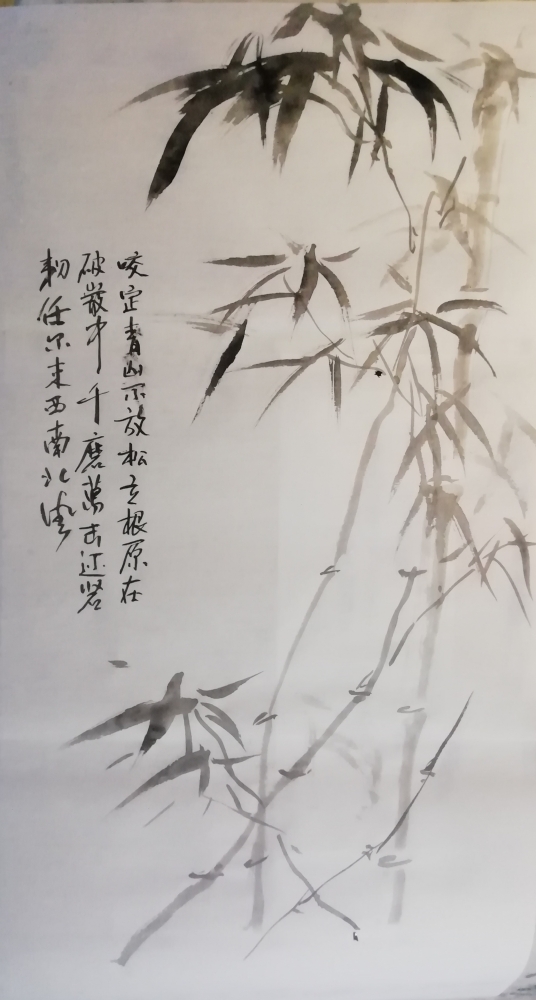 咬定青山不放松立根原在
破岩中千磨萬击还坚
韌任尔东西南北風